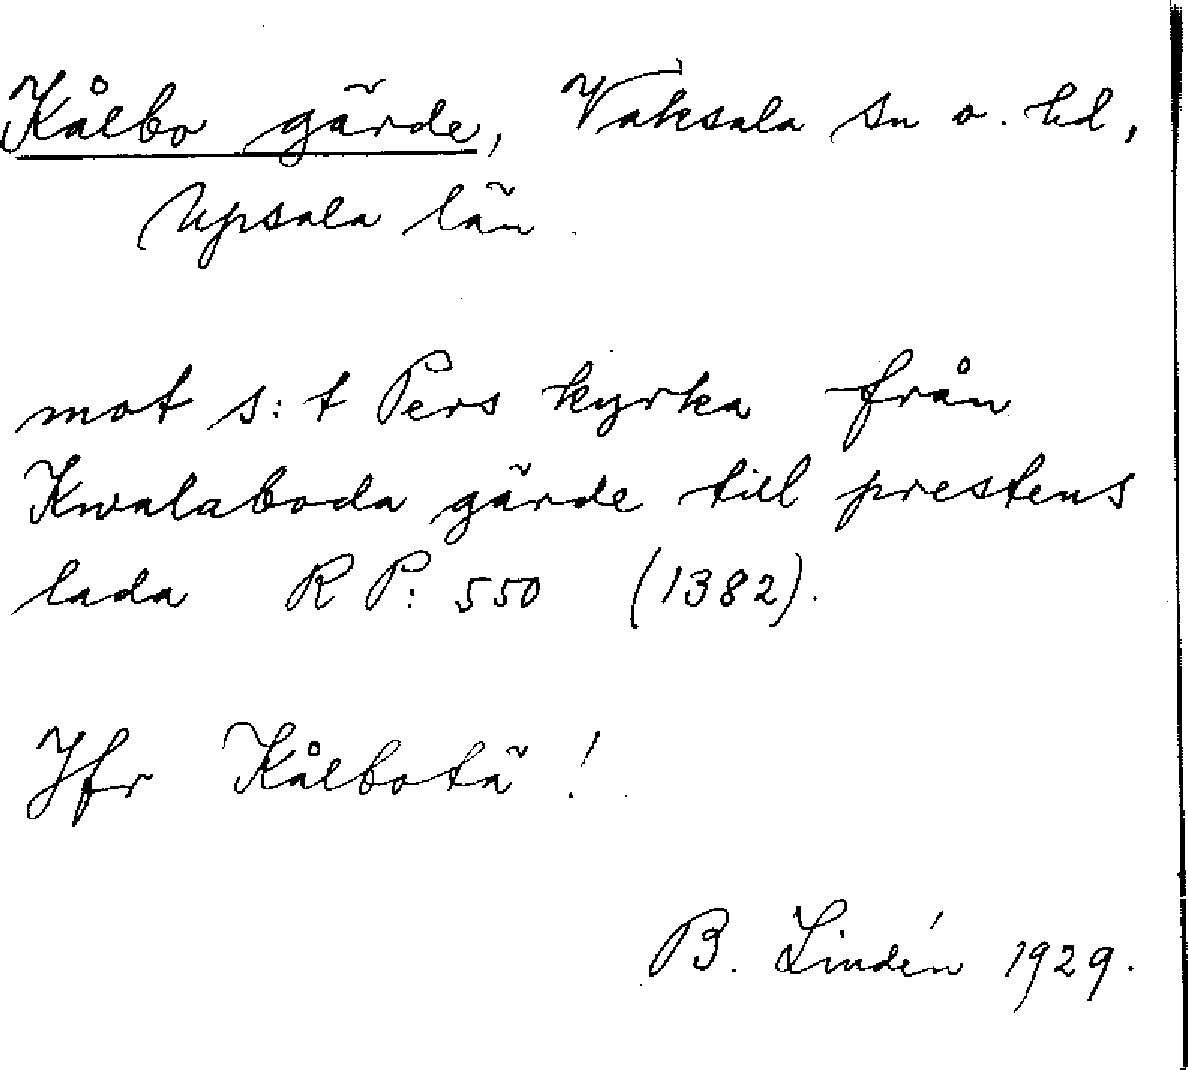 Kålbo gärde, Vaksala sn o. hd,
Upsala län.
mot s:t Pers kyrka från
Kwalaboda gärde till prestens
lada RP: 550 (1382).
Jfr Kålbotä!
B. Lindén 1929.